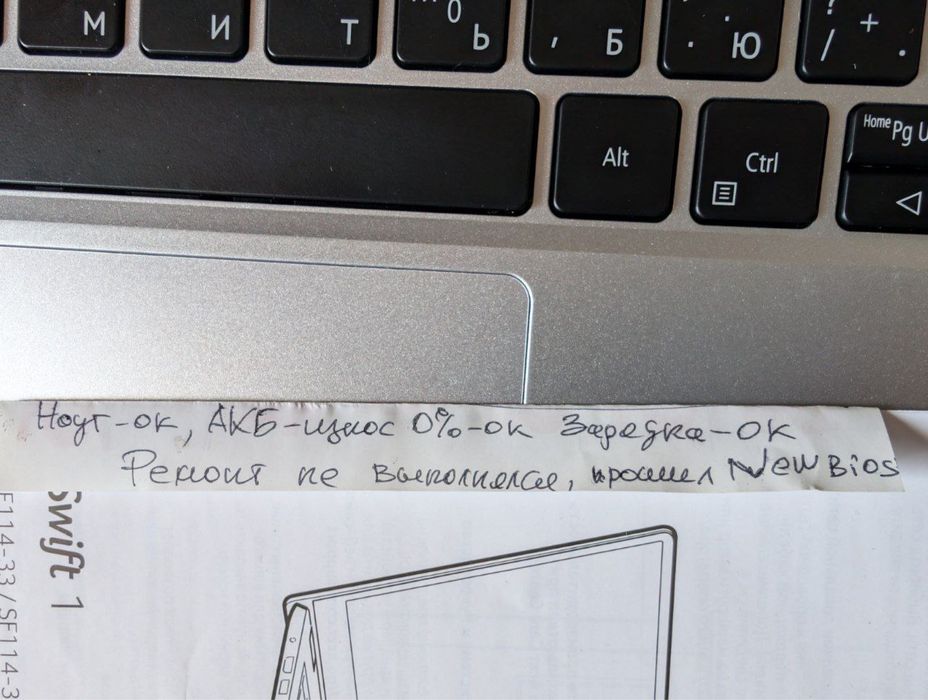 М И Т 0 Ь , Б . Ю ? / + .
Alt Ctrl Home Pg U
Ноут-ок, АКБ-износ 0%-ок Зарядка-ОК
Ремонт не выполнялся, прошил New Bios
Swift 1
F114-33 / SF114-3